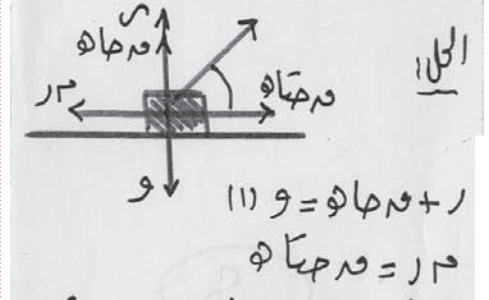 الحل:
ر
ق جا هـ
م ر
ق جتا هـ
و
ر + ق جا هـ = و (١)
م ر = ق جتا هـ